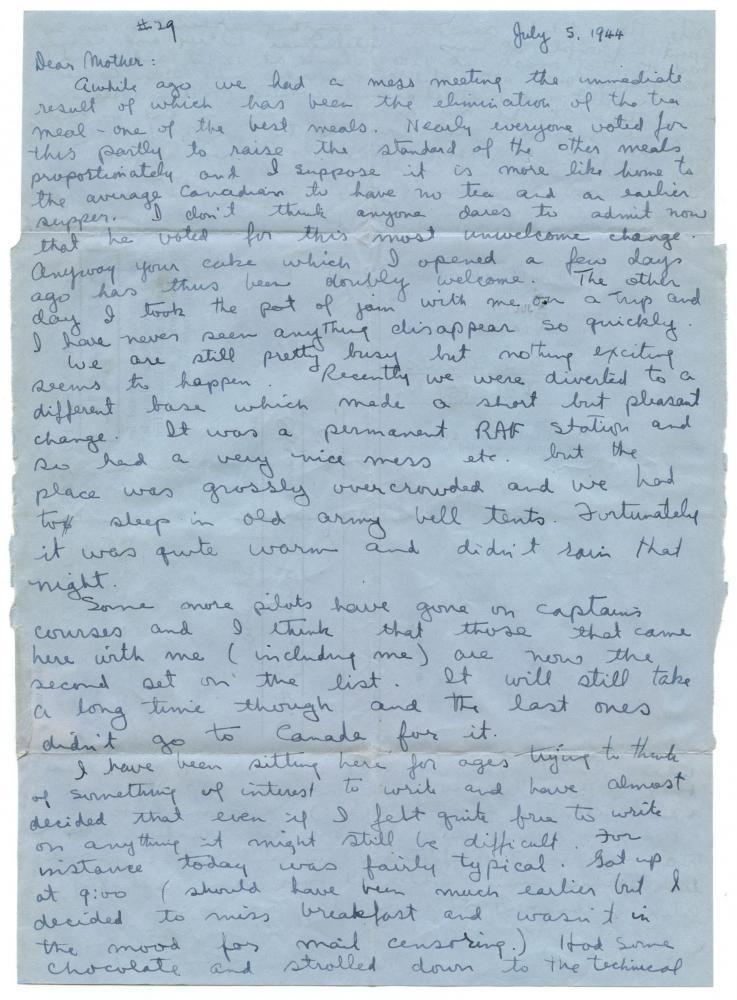 #29
July 5, 1944
Dear Mother:
Awhile ago we had a mess meeting the immediate
result of which has been the elimination of the tea
meal - one of the best meals. Nearly everyone voted for
this partly to raise the standard of the other meals
proportionately and I suppose it is more like home to
the average Canadian to have no tea and an earlier
supper. I don't think anyone dares to admit now
that he voted for this most unwelcome change.
Anyway your cake which I opened a few days
ago has thus been doubly welcome. The other
day I took the pot of jam with me on a trip and
I have never seen anything disappear so quickly.
We are still pretty busy but nothing exciting
seems to happen. Recently we were diverted to a
different base which made a short but pleasant
change. It was a permanent RAF station and
so had a very nice mess etc. but the
place was grossly overcrowded and we had
to sleep in old army bell tents. Fortunately
it was quite warm and didn't rain that
night.
Some more pilots have gone on captains
courses and I think that those that came
here with me (including me) are now the
second set on the list. It will still take
a long time though and the last ones
didn't go to Canada for it.
I have been sitting here for ages trying to think
of something of interest to write and have almost
decided that even if I felt quite free to write
on anything it might still be difficult. For
instance today was fairly typical. Got up
at 9:00 (should have been much earlier but I
decided to miss breakfast and wasn't in
the mood for mail censoring.) Had some
chocolate and strolled down to the technical